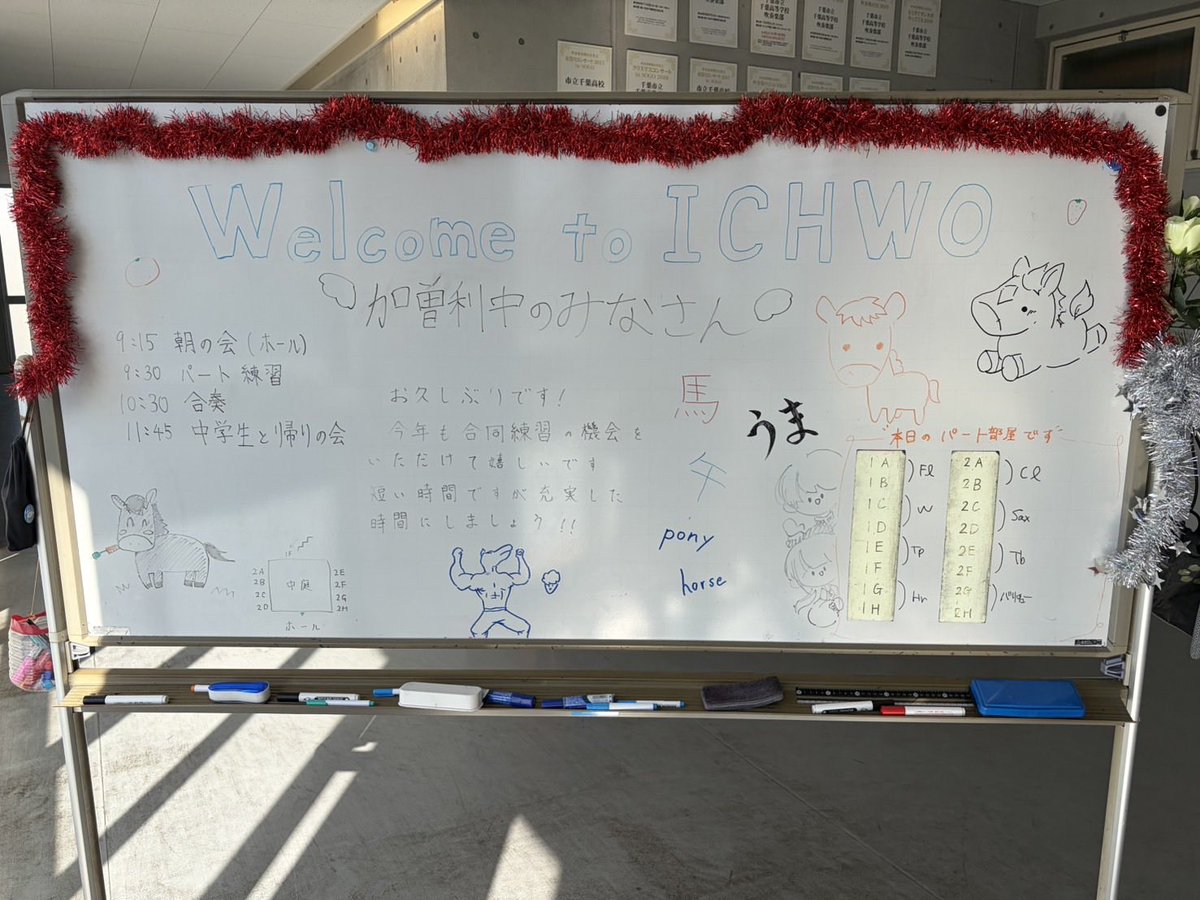 市立千葉高校
千葉市立
千葉高等学校
吹奏楽部
Welcome to ICHWO
加曽利中のみなさん
9:15 朝の会(ホール)
9:30 パート練習
10:30 合奏
11:45 中学生と帰りの会
お久しぶりです!
今年も合同練習の機会を
いただけて嬉しいです
短い時間ですが充実した
時間にしましょう!!
馬
うま
午
pony
horse
本日のパート部屋です
1A
1B
Fl
1C
1D
W
1E
1F
Tp
1G
1H
Hr
2A
2B
Cl
2C
2D
Sax
2E
2F
Tb
2G
2H
1F
2A
2B
2C
2D
中庭
2E
2F
2G
2H
ホール